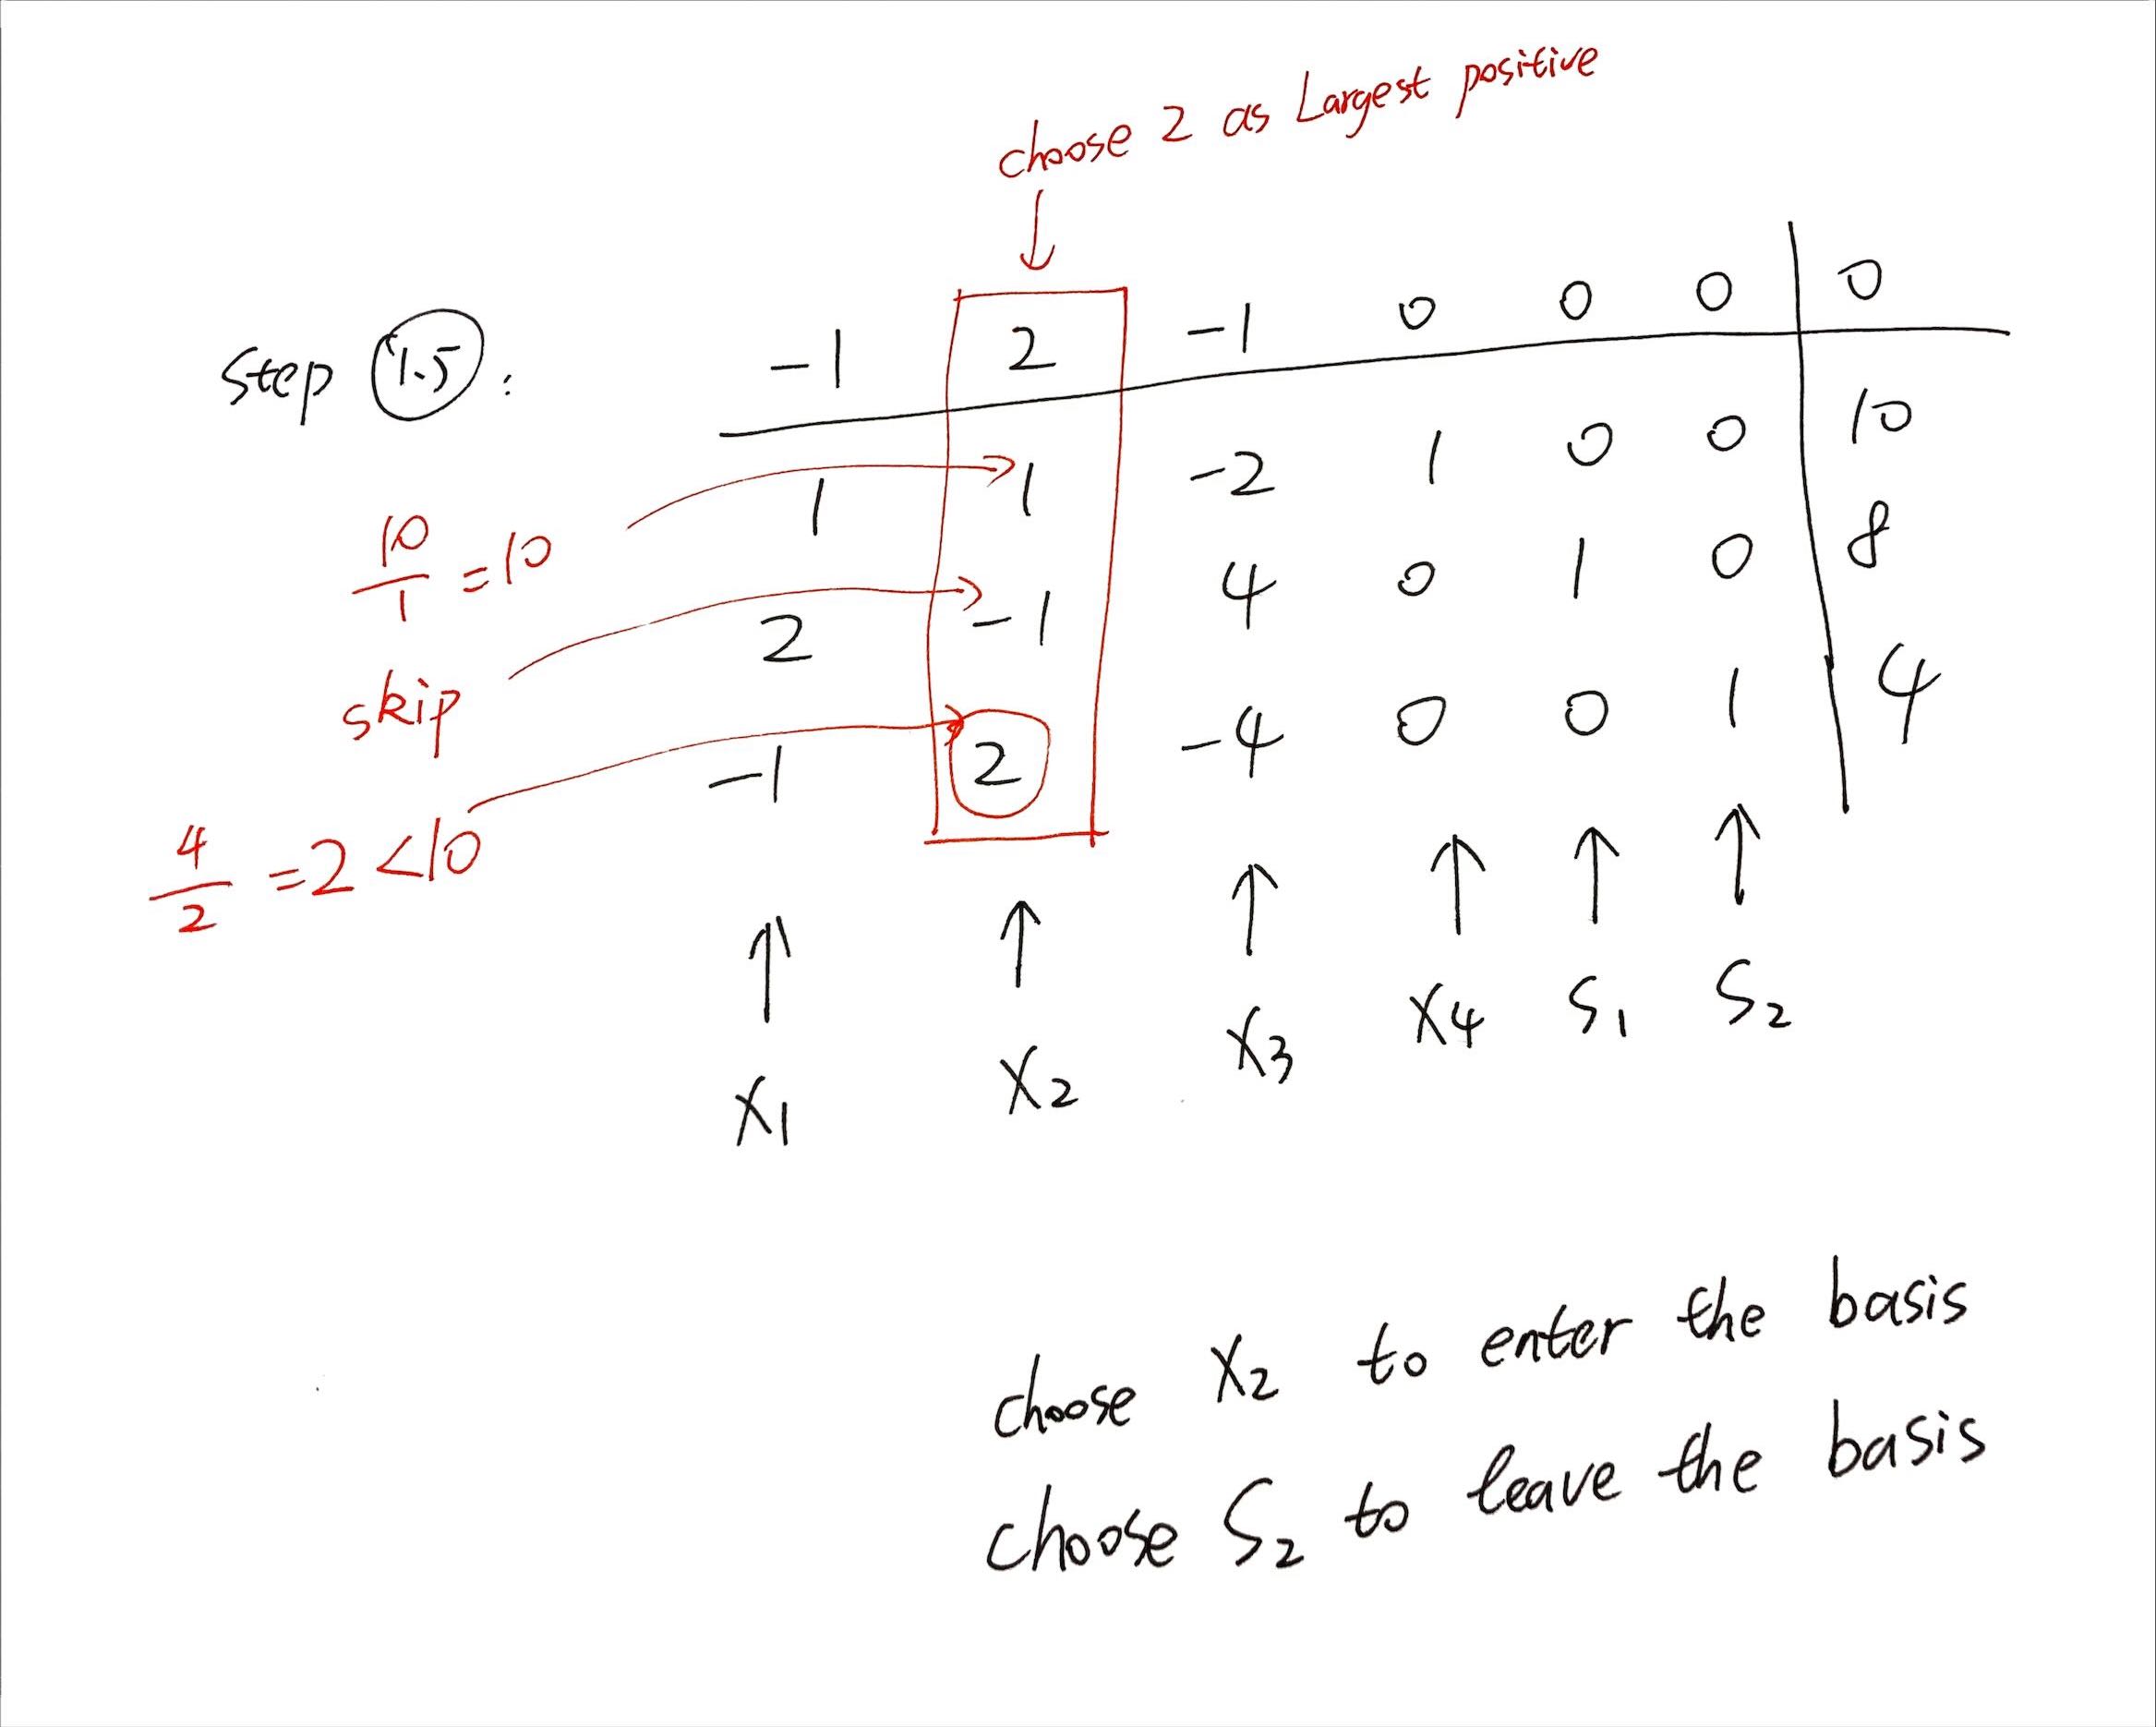 choose 2 as Largest positive
↓
step 1.5 :
-1 2 -1 0 0 0 0
10/1 = 10 → 1 1 -2 1 0 0 10
skip → 2 -1 4 0 1 0 8
4/2 = 2 < 10 → -1 2 -4 0 0 1 4
↑ ↑ ↑ ↑ ↑ ↑
X1 X2 X3 X4 S1 S2
choose X2 to enter the basis
choose S2 to leave the basis